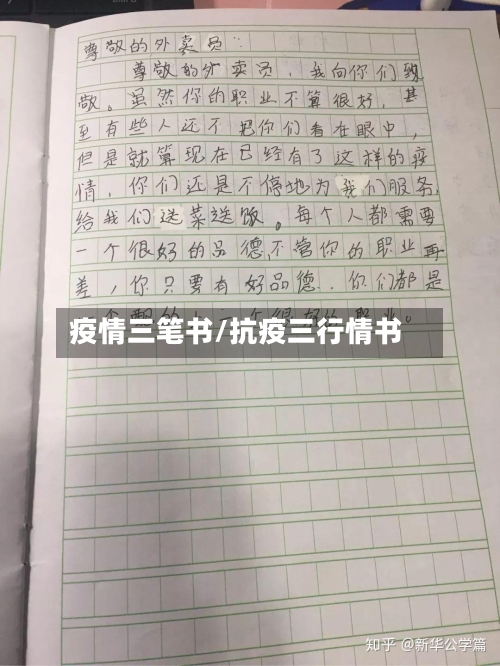 尊敬的外卖员：
尊敬的外卖员，我向你们致
敬。虽然你的职业不算很好，甚
至有些人还不把你们看在眼中，
但是就算现在已经有了这样的疫
情，你们还是不停地为我们服务，
给我们送菜送饭。每个人都需要
一个很好的品德，不管你的职业再
差，你只要有好品德，你们都是
一个很好的职业。
疫情三笔书/抗疫三行情书
知乎 @新华公学篇